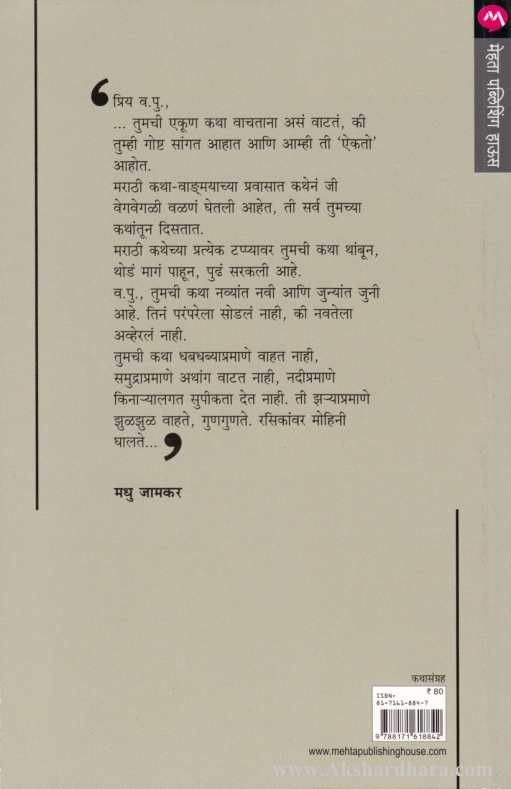 मेहता पब्लिशिंग हाऊस
प्रिय व.पु.,
... तुमची एकूण कथा वाचताना असं वाटतं, की
तुम्ही गोष्ट सांगत आहात आणि आम्ही ती 'ऐकतो'
आहोत.
मराठी कथा-वाङ्मयाच्या प्रवासात कथेनं जी
वेगवेगळी वळणं घेतली आहेत, ती सर्व तुमच्या
कथांतून दिसतात.
मराठी कथेच्या प्रत्येक टप्प्यावर तुमची कथा थांबून,
थोडं मागं पाहून, पुढं सरकली आहे.
व.पु., तुमची कथा नव्यांत नवी आणि जुन्यांत जुनी
आहे. तिनं परंपरेला सोडलं नाही, की नवतेला
अव्हेरलं नाही.
तुमची कथा धबधब्याप्रमाणे वाहत नाही,
समुद्राप्रमाणे अथांग वाटत नाही, नदीप्रमाणे
किनाऱ्यालगत सुपीकता देत नाही. ती झऱ्याप्रमाणे
झुळझुळ वाहते, गुणगुणते. रसिकांवर मोहिनी
घालते...
मधु जामकर
कथासंग्रह
₹ 80
ISBN-
81-7161-884-7
9 788171 618842
www.mehtapublishinghouse.com
www.Akshardhara.com